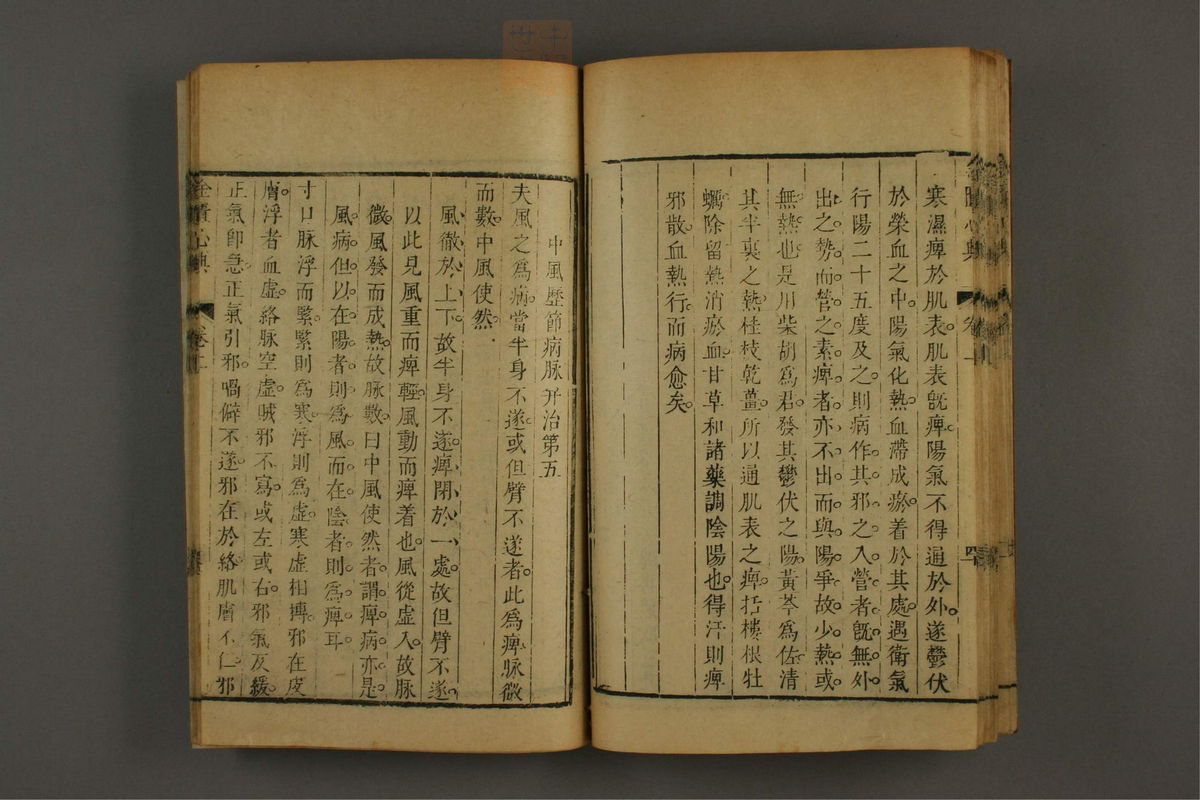 寒濕痺於肌表。肌表既痺。陽氣不得通於外。遂鬱伏
於榮血之中。陽氣化熱。血滯成瘀。着於其處。遇衛氣
行陽二十五度及之。則病作。其邪之入營者。既無外
出之勢。而營之素痺者。亦不出而與陽爭。故少熱。或
無熱也。是用柴胡爲君。發其鬱伏之陽。黃芩爲佐。清
其半裏之熱。桂枝乾薑。所以通肌表之痺。括樓根牡
蠣。除留熱消瘀血。甘草和諸藥。調陰陽也。得汗則痺
邪散。血熱行。而病愈矣。
中風歷節病脉并治第五
夫風之爲病。當半身不遂。或但臂不遂者。此爲痺。脉微
而數。中風使然。
風徹於上下。故半身不遂。痺閉於一處。故但臂不遂。
以此見風重而痺輕。風動而痺着也。風從虛入。故脉
微。風發而成熱。故脉數。曰中風使然者。謂痺病亦是
風病。但以在陽者則爲風。而在陰者則爲痺耳
寸口脉浮而緊。緊則爲寒。浮則爲虛。寒虛相摶。邪在皮
膚。浮者血虛。絡脉空虛。賊邪不寫。或左或右。邪氣反緩。
正氣卽急。正氣引邪。喎僻不遂。邪在於絡。肌膚不仁。邪